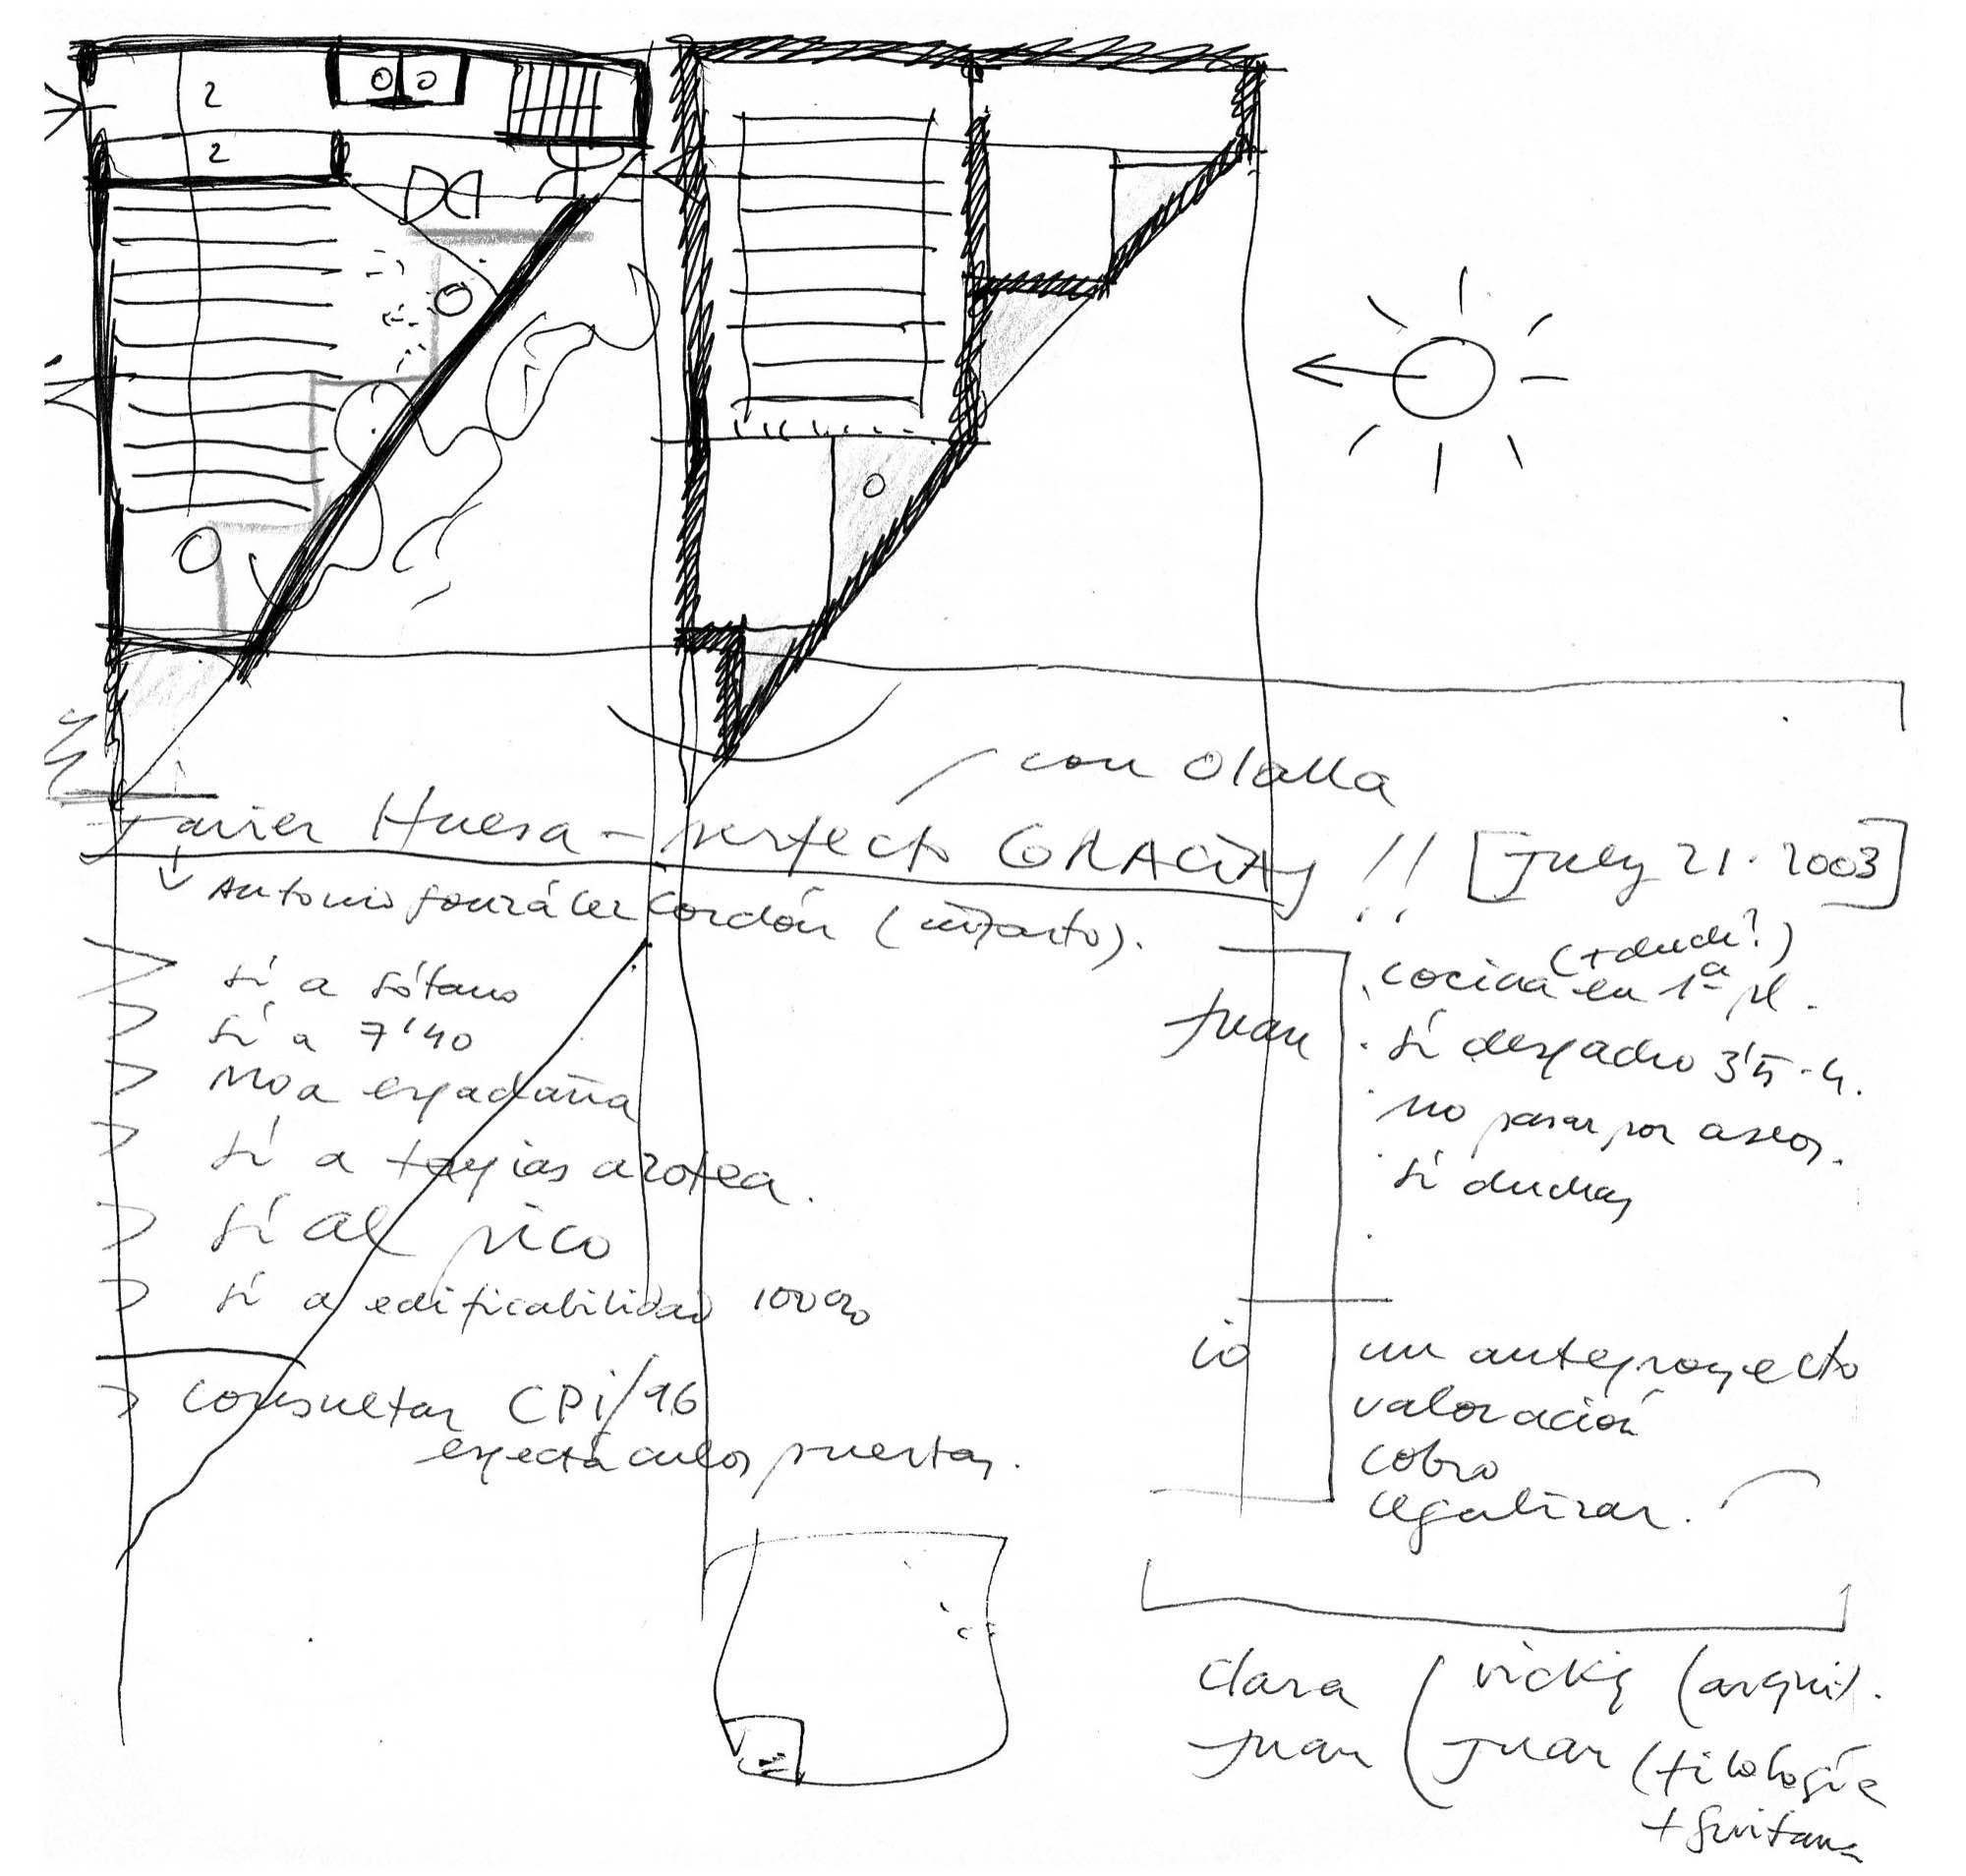 2
2
con Olalla
Javier Huesa - perfecto GRACIAS !! [July 21. 2003]
Antonio González Cordón (infarto).
sí a sótano
sí a 7'40
No a espadaña
sí a tapias azotea.
sí al pico
sí a edificabilidad 100%
consultar CPi/96
espectáculos puertas.
Juan
(+ duch?)
cocina en 1ª pl.
sí despacho 3'5 - 4.
no pasar por aseos.
sí duchas
io
un anteproyecto
valoración
cobro
legalizar.
clara ( vicky (arqui).
Juan ( Juan (filología
+ guitarra